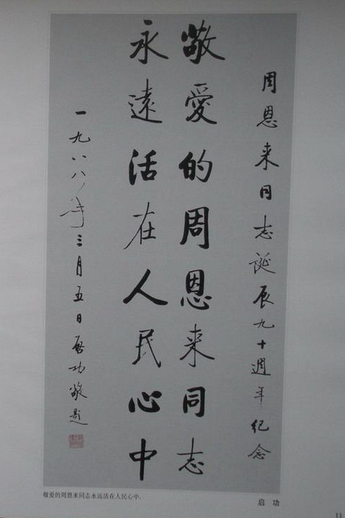 周恩来同志誕辰九十週年纪念
敬愛的周恩来同志
永遠活在人民心中
一九八八年三月五日启功敬题
敬爱的周恩来同志永远活在人民心中.
启功